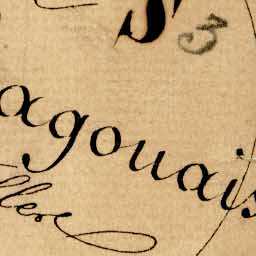 S 3
agouais
llere